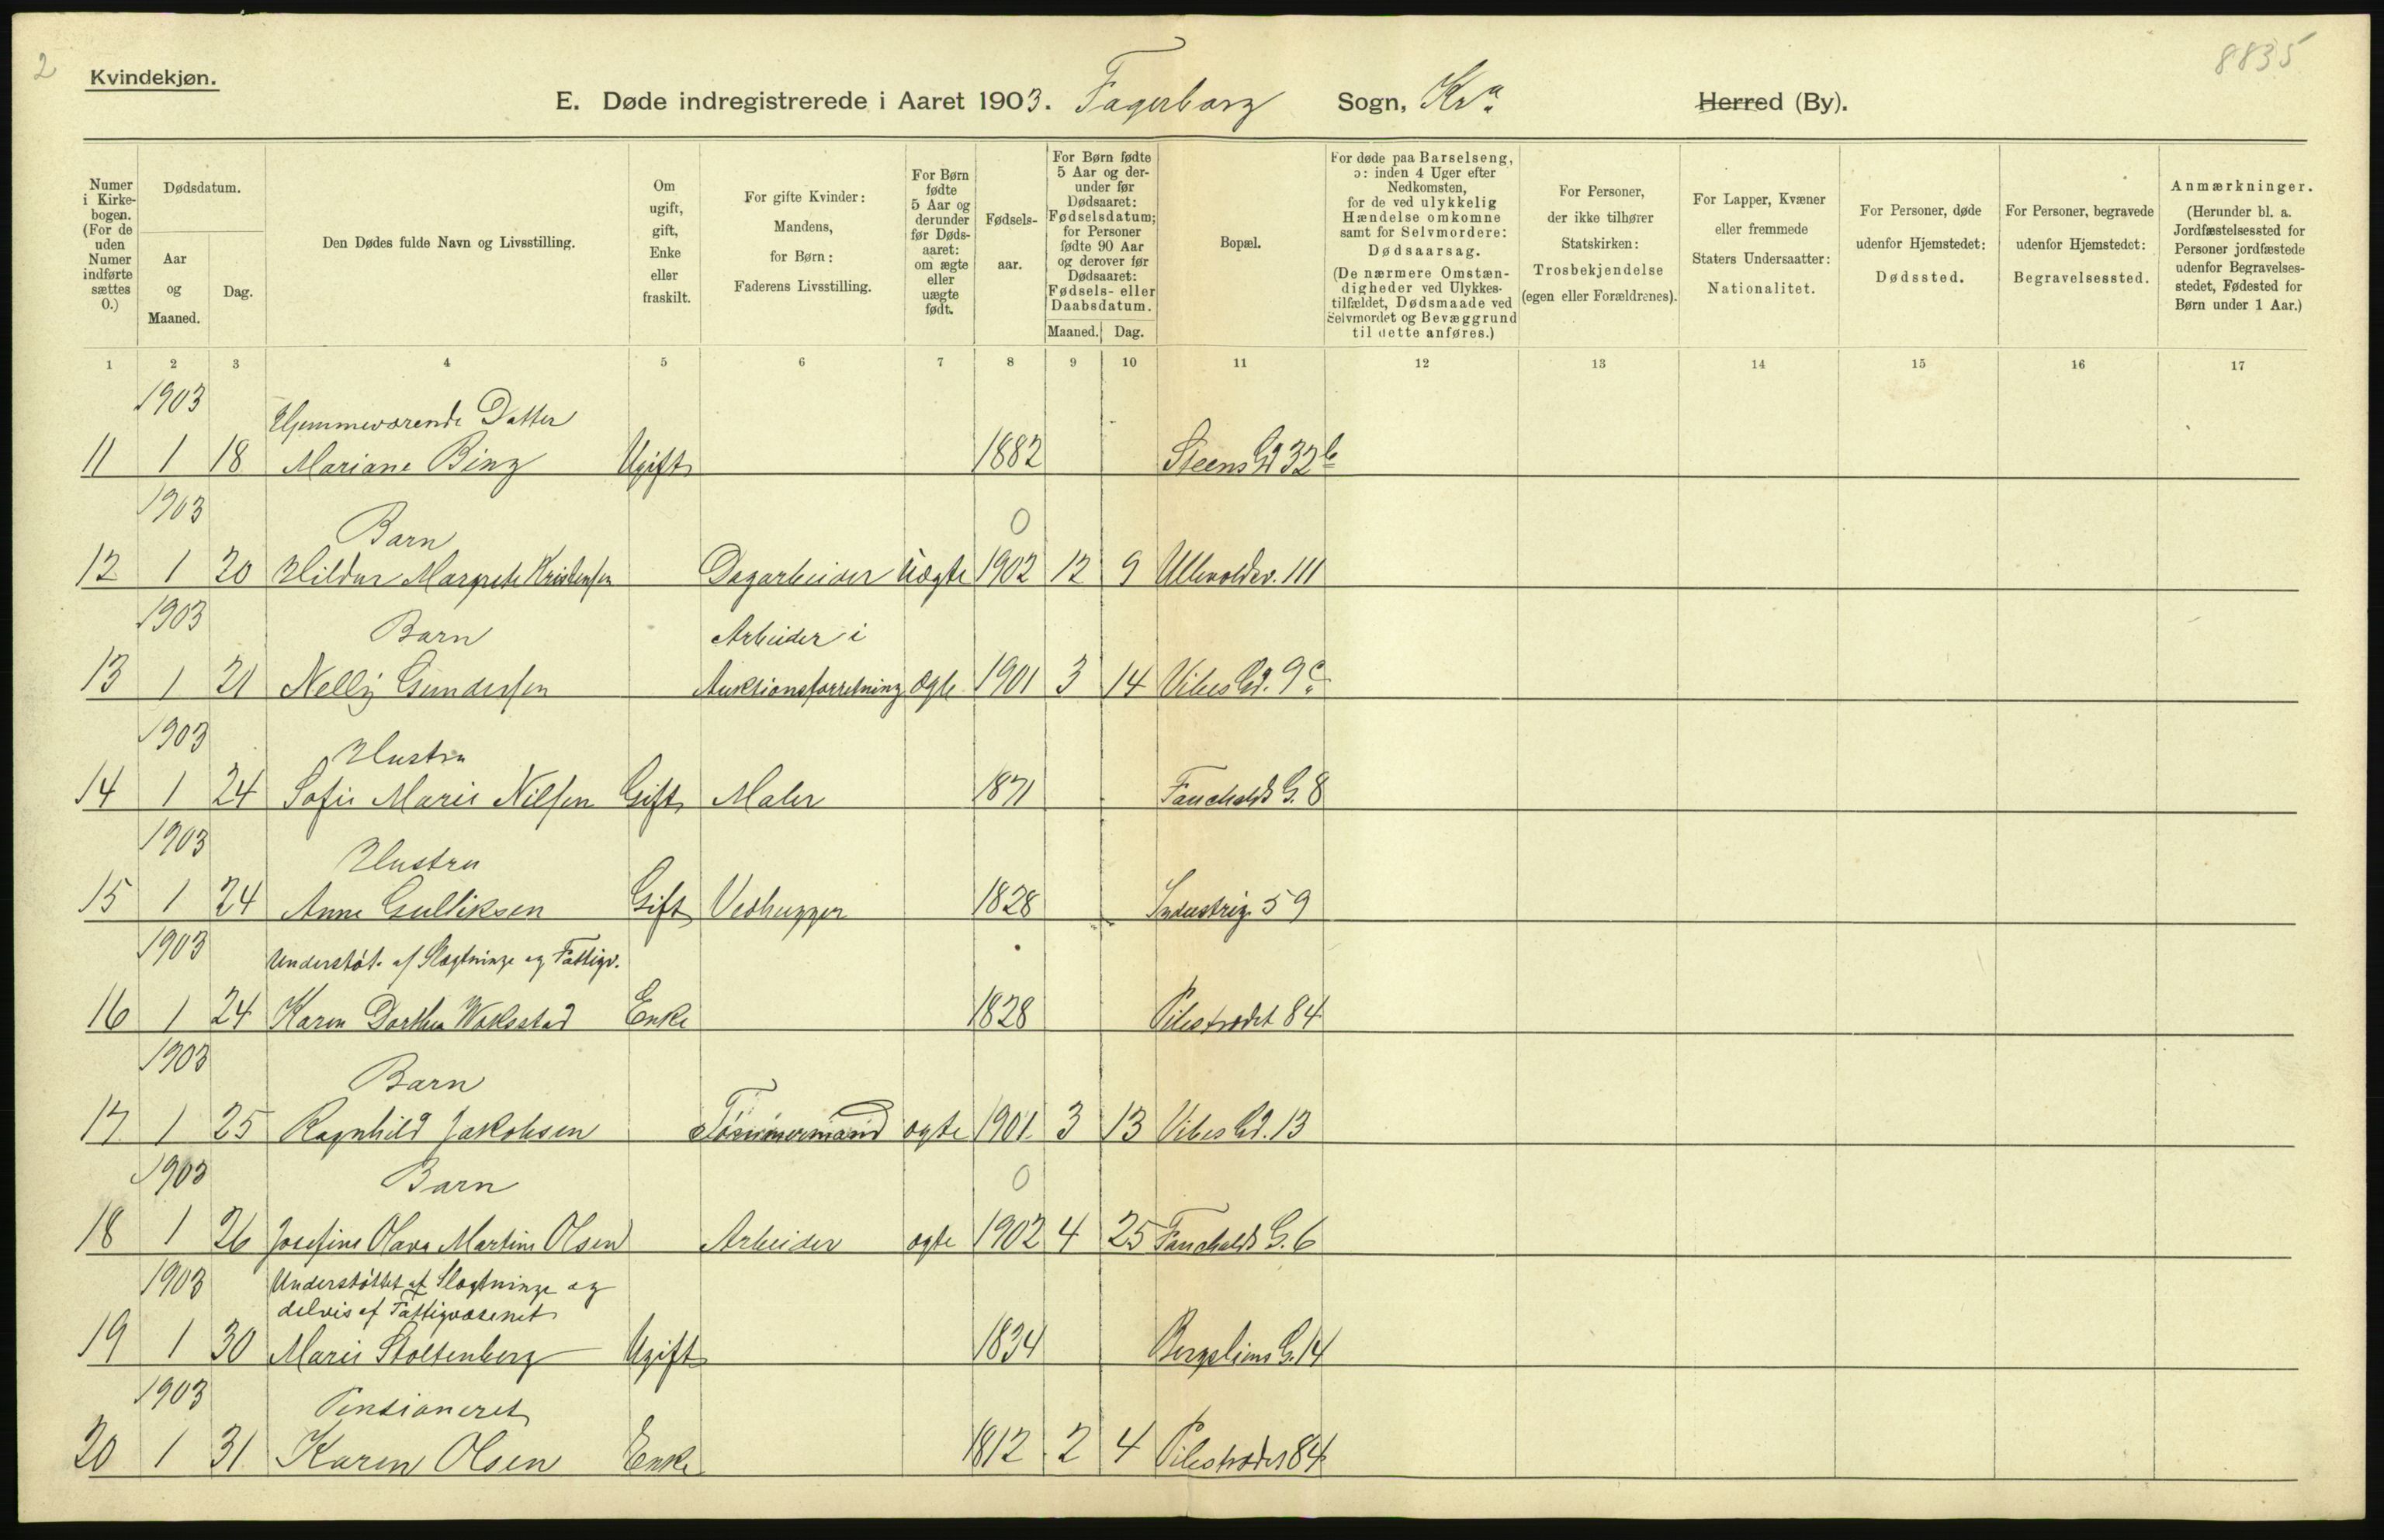 2
8835
Kvindekjøn.
E. Døde indregistrerede i Aaret 1903. Fagerborg Sogn, Kra. Herred (By).
Numer i Kirkebogen. (For de uden Numer indførte sættes 0.)
Dødsdatum.
Aar og Maaned.
Dag.
Den Dødes fulde Navn og Livsstilling.
Om ugift, gift, Enke eller fraskilt.
For gifte Kvinder: Mandens, for Børn: Faderens Livsstilling.
For Børn fødte 5 Aar og derunder før Dødsaaret: om ægte eller uægte født.
Fødselsaar.
For Børn fødte 5 Aar og derunder før Dødsaaret: Fødselsdatum; for Personer fødte 90 Aar og derover før Dødsaaret: Fødsels- eller Daabsdatum.
Maaned. Dag.
Bopæl.
For døde paa Barselseng, ɔ: inden 4 Uger efter Nedkomsten, for de ved ulykkelig Hændelse omkomne samt for Selvmordere: Dødsaarsag. (De nærmere Omstændigheder ved Ulykkestilfældet, Dødsmaade ved Selvmordet og Bevæggrund til dette anføres.)
For Personer, der ikke tilhører Statskirken: Trosbekjendelse (egen eller Forældrenes).
For Lapper, Kvæner eller fremmede Staters Undersaatter: Nationalitet.
For Personer, døde udenfor Hjemstedet: Dødssted.
For Personer, begravede udenfor Hjemstedet: Begravelsessted.
Anmærkninger. (Herunder bl. a. Jordfæstelsessted for Personer jordfæstede udenfor Begravelsesstedet, Fødested for Børn under 1 Aar.)
1 2 3 4 5 6 7 8 9 10 11 12 13 14 15 16 17
1903 Hjemmeværende Datter
11 1 18 Mariane Bing Ugift 1882 Steens Gd 32b
1903 Barn 0
12 1 20 Hildur Margrete Kristensen Dagarbeider Uægte 1902 12 9 Ullevoldsv. 111
1903 Barn Arbeider i
13 1 21 Nelly Gundersen Auktionsforretning ægte 1901 3 14 Vibes Gd. 9c
1903 Hustru
14 1 24 Sofie Marie Nilsen Gift Maler 1871 Fauchalds G. 8
1903 Hustru
15 1 24 Anne Gulliksen Gift Vedhugger 1828 Industrig. 59
1903 Understøt. af Slægtninge og Fattigv.
16 1 24 Karen Dorthea Woksstad Enke 1828 Pilestrædet 84
1903 Barn
17 1 25 Ragnhild Jakobsen Tømmermand ægte 1901 3 13 Vibes Gd. 13
1903 Barn 0
18 1 26 Josefine Olava Martine Olsen Arbeider ægte 1902 4 25 Fauchalds G. 6
1903 Understøttet af Slægtninge og
delvis af Fattigvæsenet
19 1 30 Marie Stoltenberg Ugift 1834 Bergsliens G. 14
1903 Pensioneret
20 1 31 Karen Olsen Enke 1812 2 4 Pilestrædet 84